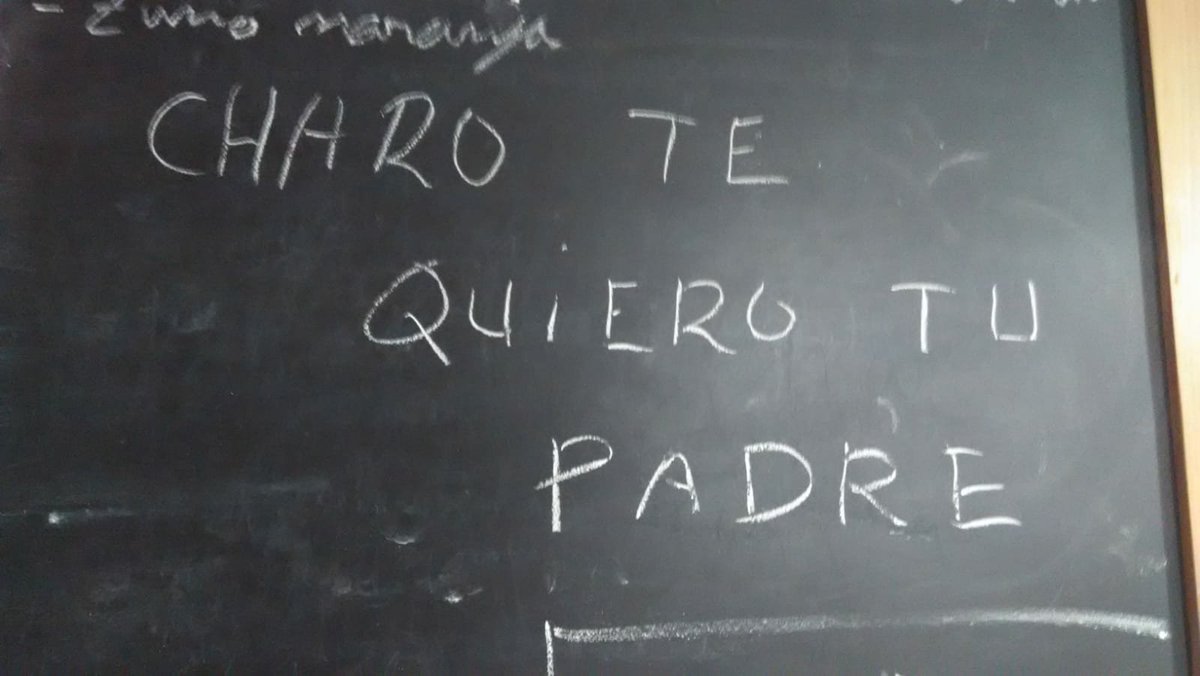 - Zumo naranja
CHARO TE
QUiERO TU
PADRE